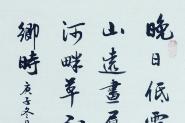 晚日低霞
山遠畫眉
河畔草
鄉時
庚子冬月